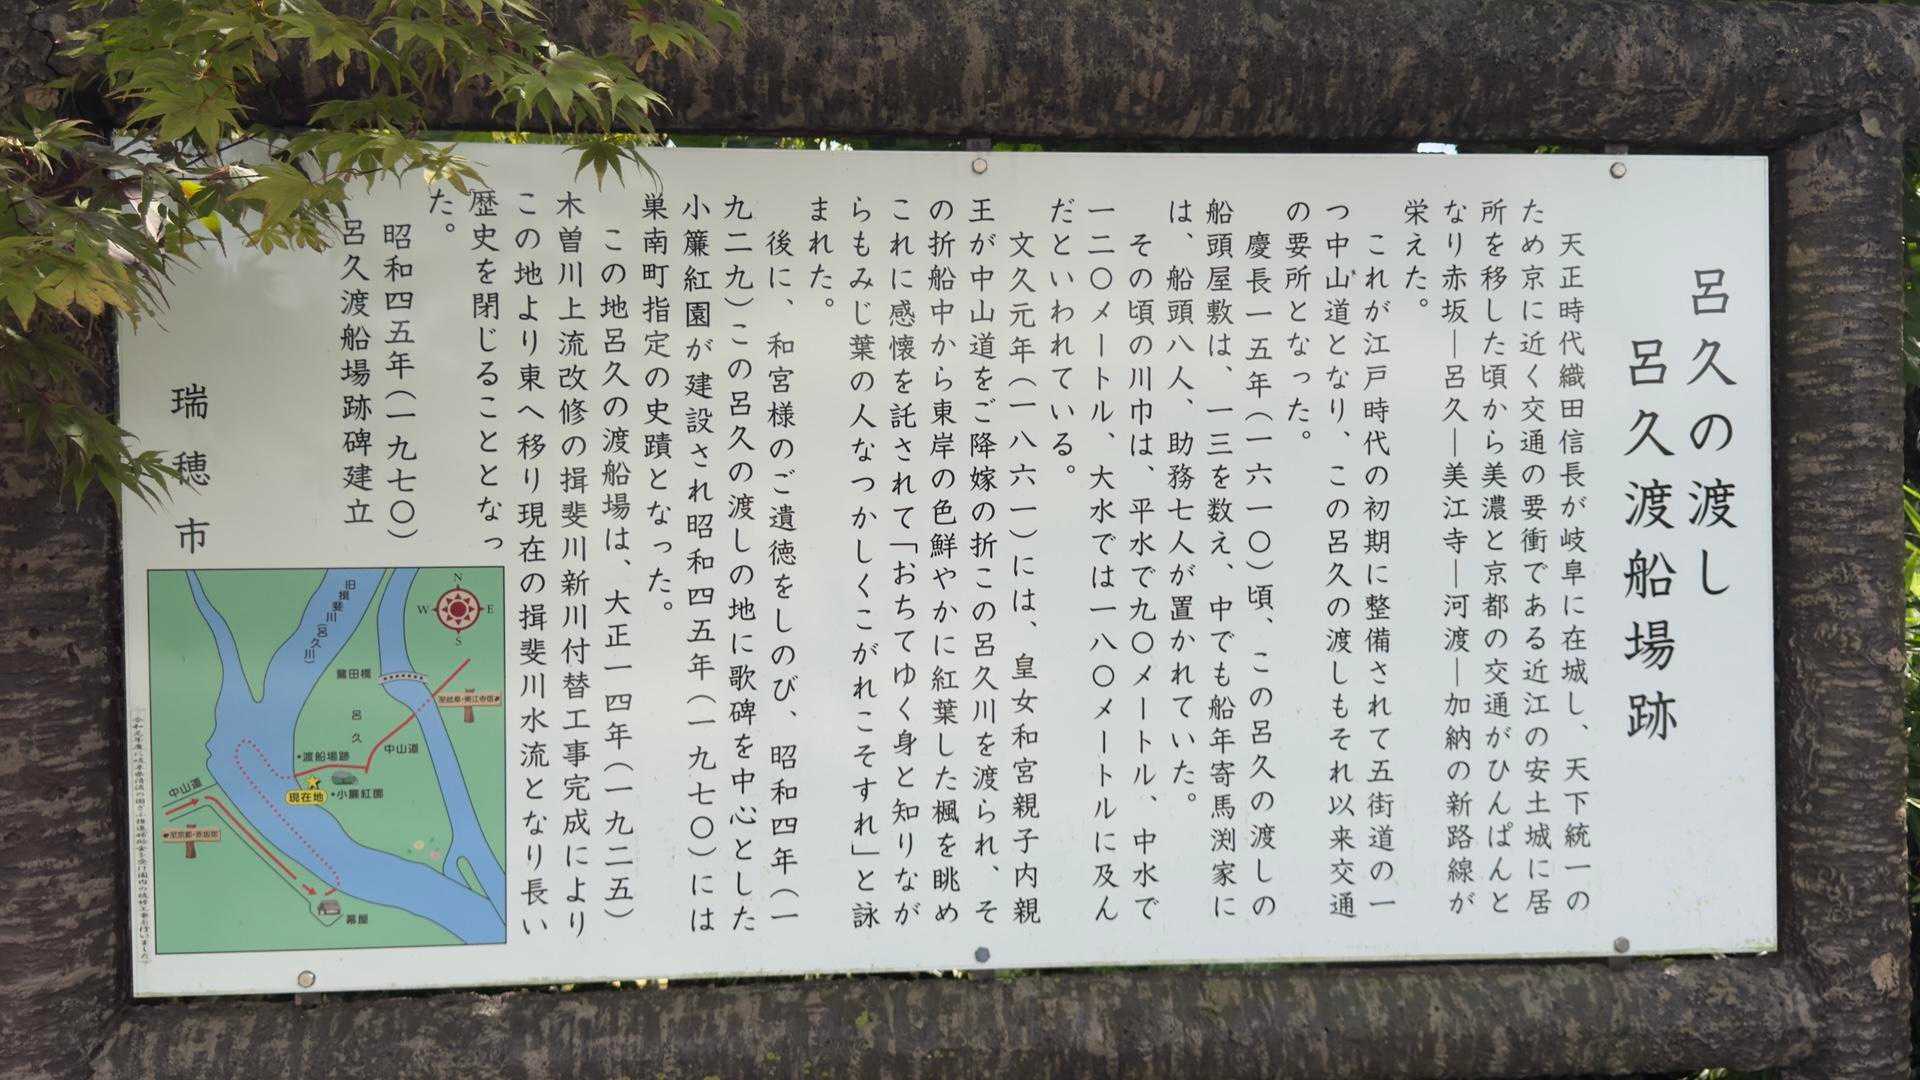 呂久の渡し
呂久渡船場跡
天正時代織田信長が岐阜に在城し、天下統一の
ため京に近く交通の要衝である近江の安土城に居
所を移した頃から美濃と京都の交通がひんぱんと
なり赤坂―呂久―美江寺―河渡―加納の新路線が
栄えた。
これが江戸時代の初期に整備されて五街道の一
つ中山道となり、この呂久の渡しもそれ以来交通
の要所となった。
慶長一五年(一六一〇)頃、この呂久の渡しの
船頭屋敷は、一三を数え、中でも船年寄馬渕家に
は、船頭八人、助務七人が置かれていた。
その頃の川巾は、平水で九〇メートル、中水で
一二〇メートル、大水では一八〇メートルに及ん
だといわれている。
文久元年(一八六一)には、皇女和宮親子内親
王が中山道をご降嫁の折この呂久川を渡られ、そ
の折船中から東岸の色鮮やかに紅葉した楓を眺め
これに感懐を託されて「おちてゆく身と知りなが
らもみじ葉の人なつかしくこがれこそすれ」と詠
まれた。
後に、和宮様のご遺徳をしのび、昭和四年(一
九二九)この呂久の渡しの地に歌碑を中心とした
小簾紅園が建設され昭和四五年(一九七〇)には
巣南町指定の史蹟となった。
この地呂久の渡船場は、大正一四年(一九二五)
木曽川上流改修の揖斐川新川付替工事完成により
この地より東へ移り現在の揖斐川水流となり長い
歴史を閉じることとなっ
た。
昭和四五年(一九七〇)
呂久渡船場跡碑建立
瑞穂市
旧揖斐川(呂久川)
N
W
E
S
鷺田橋
至岐阜・美江寺宿
呂久
中山道
・渡船場跡
現在地
・小簾紅園
中山道
至京都・赤坂宿
幕屋